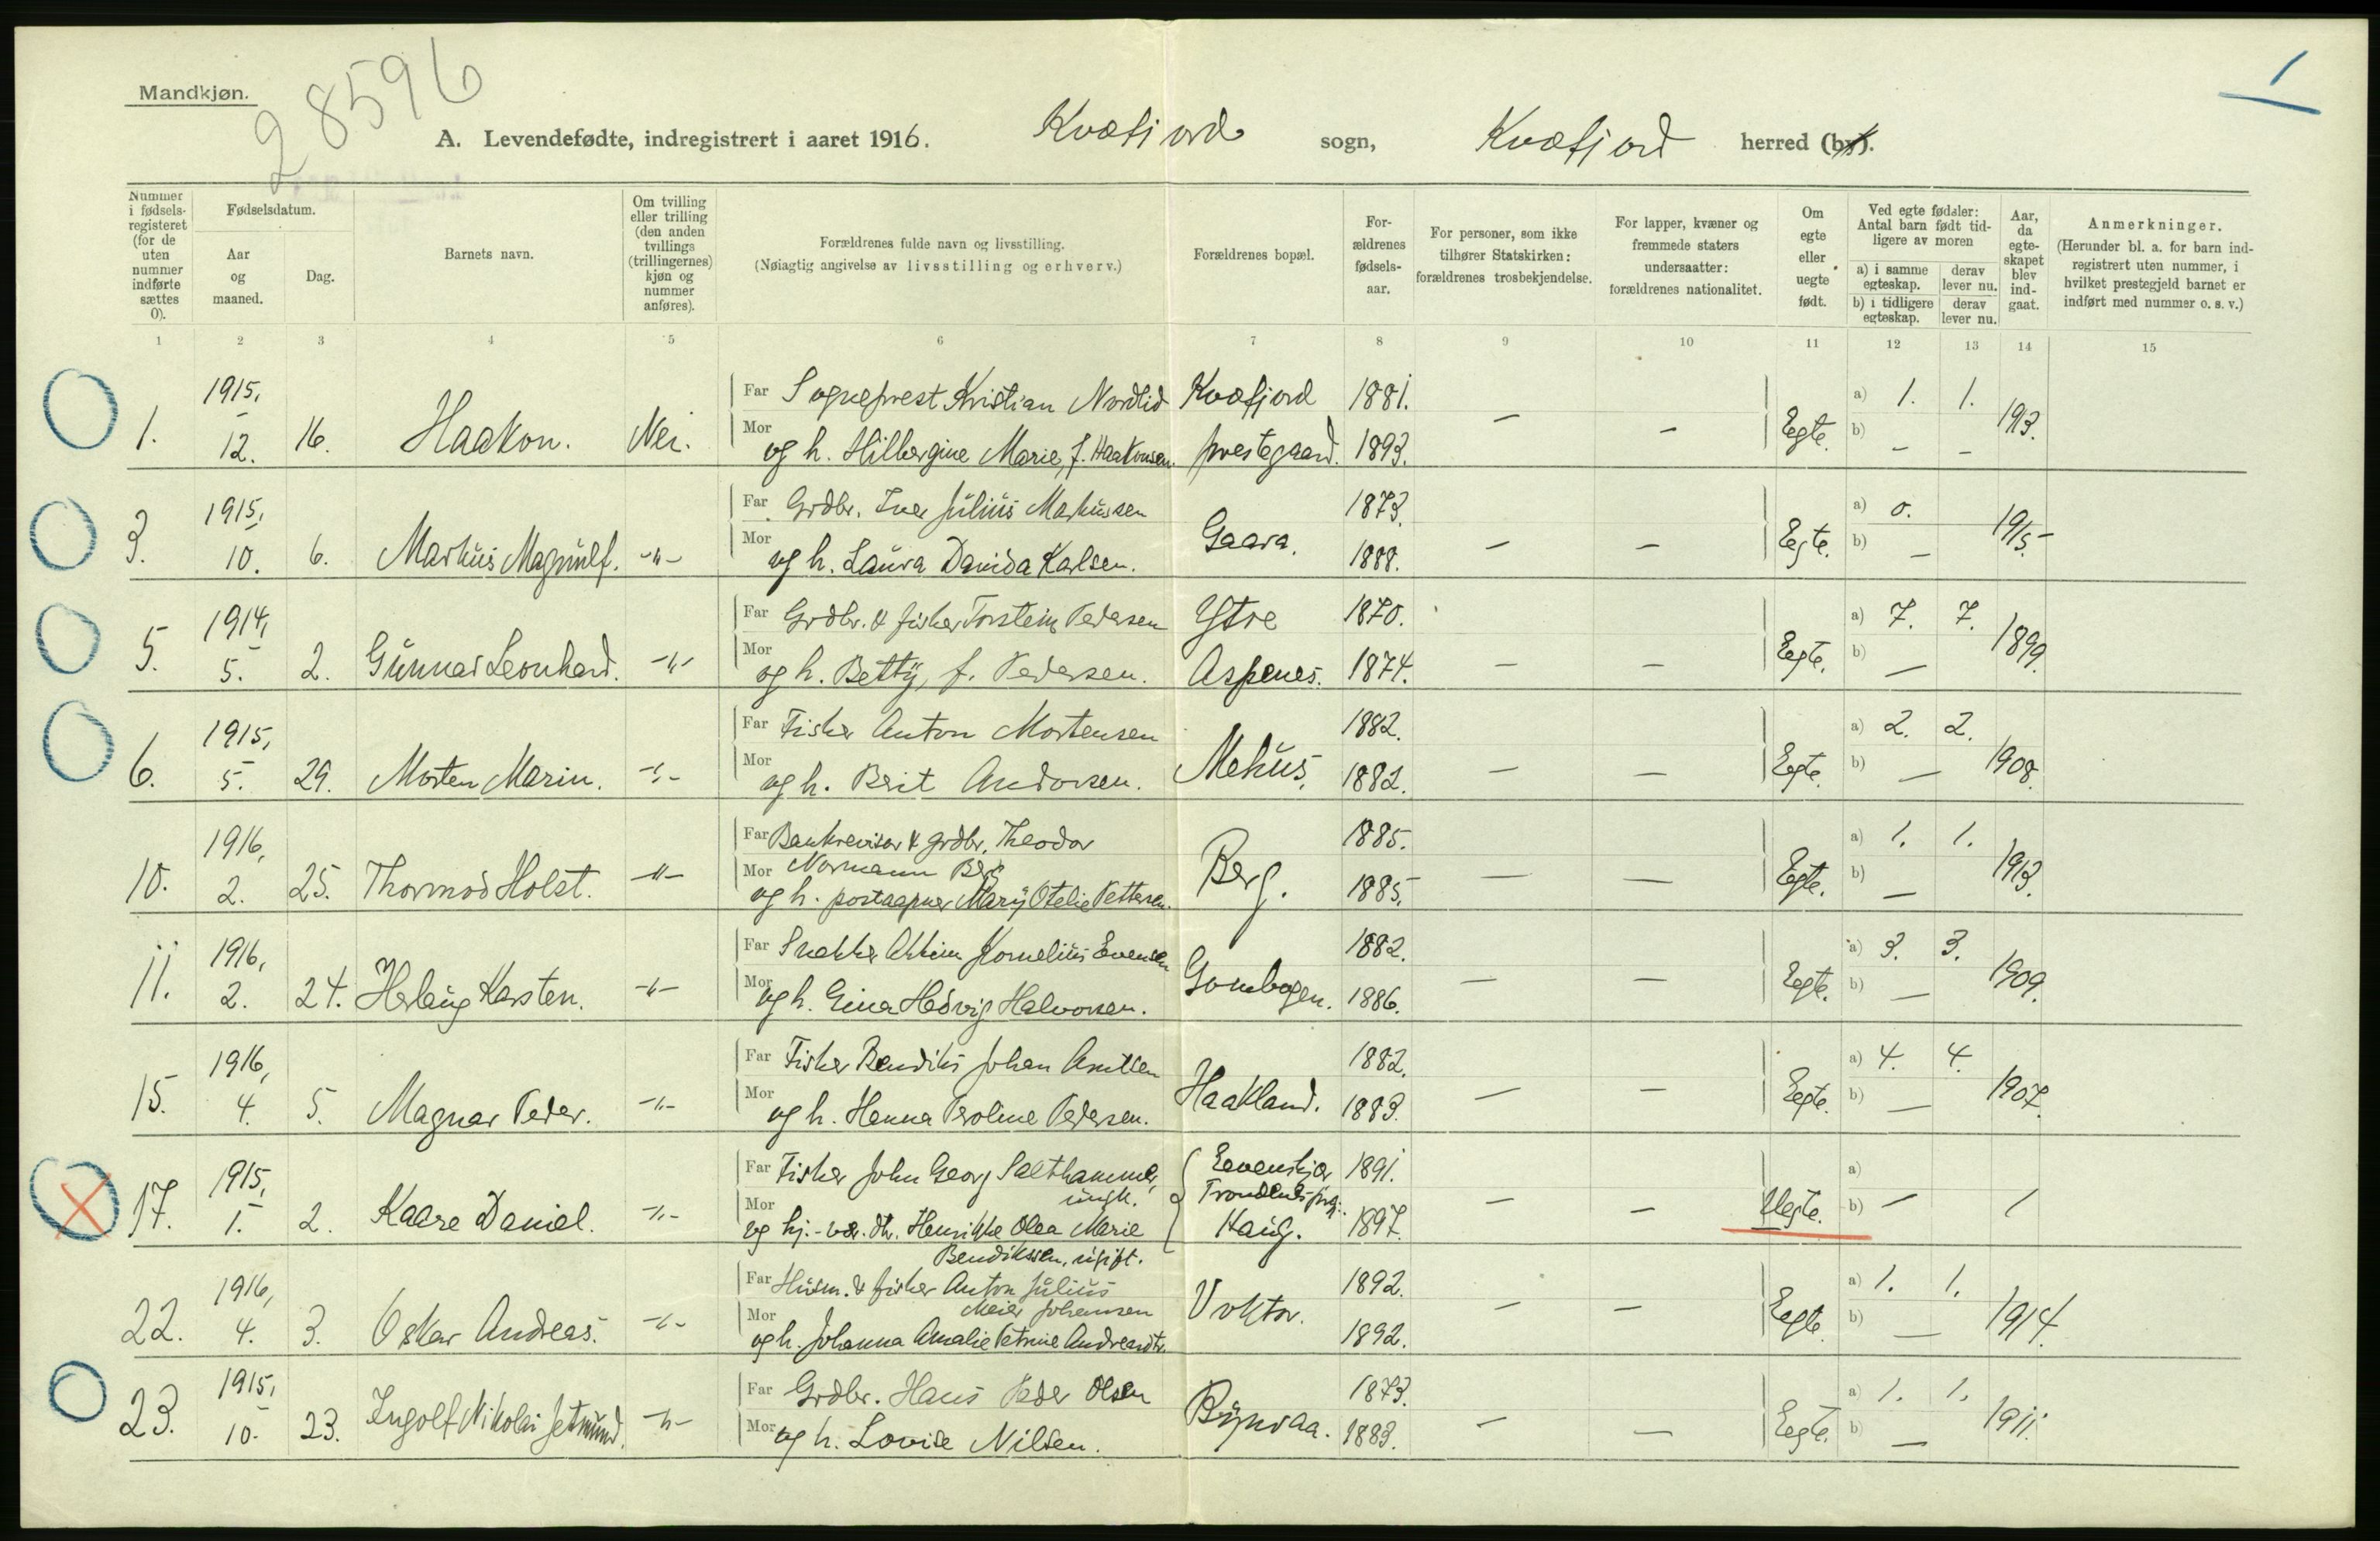 Mandkjøn.
28596
1
A. Levendefødte, indregistrert i aaret 1916. Kvæfjord sogn, Kvæfjord herred (by).
Nummer i fødsels-registeret (for de uten nummer indførte sættes 0).
Fødselsdatum.
Aar og maaned.
Dag.
Barnets navn.
Om tvilling eller trilling (den anden tvillings (trillingernes) kjøn og nummer anføres).
Forældrenes fulde navn og livsstilling.
(Nøiagtig angivelse av livsstilling og erhverv.)
Forældrenes bopæl.
For-ældrenes fødsels-aar.
For personer, som ikke tilhører Statskirken: forældrenes trosbekjendelse.
For lapper, kvæner og fremmede staters undersaatter: forældrenes nationalitet.
Om egte eller uegte født.
Ved egte fødsler: Antal barn født tid-ligere av moren
a) i samme egteskap. derav lever nu.
b) i tidligere egteskap. derav lever nu.
Aar, da egte-skapet blev ind-gaat.
Anmerkninger.
(Herunder bl. a. for barn ind-registrert uten nummer, i hvilket prestegjeld barnet er indført med nummer o. s. v.)
1 2 3 4 5 6 7 8 9 10 11 12 13 14 15
1915, Far Sogneprest Kristian Nordlid Kvæfjord 1881. a) 1. 1.
1. 12. 16. Haakon. Nei. Mor og h. Hilbergine Marie, f. Haakonsen. prestegaard. 1893. — — Egte. b) — — 1913.
1915, Far Grdbr. Iver Julius Markussen 1873. a) 0.
3. 10. 6. Markus Magnulf. -"- Mor og h. Laura Davida Karlsen. Gaara. 1888. — — Egte. b) — 1915
1914, Far Grdbr. & fisker Torstein Pedersen Ytre 1870. a) 7. 7.
5. 5. 2. Gunnar Leonhard. -"- Mor og h. Betty, f. Pedersen. Aspenes. 1874. — — Egte. b) — 1899.
1915, Far Fisker Anton Mortensen 1882. a) 2. 2.
6. 5. 29. Morten Marin. -"- Mor og h. Brit Andorsen. Mehus. 1882. — — Egte. b) — 1908.
1916, Far Bankrevisor & grdbr. Theodor 1885. a) 1. 1.
Normann Berg
10. 2. 25. Thormod Holst. -"- Mor og h. postaapner Mary Otelie Pettersen. Berg. 1885. — — Egte. b) — 1913.
1916, Far Snekker Kornelius Evensen 1882. a) 3. 3.
11. 2. 24. Herlaug Karsten. -"- Mor og h. Gina Hedvig Halvorsen. Gombogen. 1886. — — Egte. b) — 1909.
1916, Far Fisker Bendiks Johan Arntsen 1882. a) 4. 4.
15. 4. 5. Magnar Peder. -"- Mor og h. Hanna Peroline Pedersen. Haakland. 1883. — — Egte. b) — 1907.
1915, Far Fisker John Georg Salthammer, ungk. Evenskjær 1891. a)
Trondenes prgj.
17. 1. 2. Kaare Daniel. -"- Mor og hj.-vær. dtr. Henrikke Olea Marie Haug. 1897. — — Uegte. b) — /
Bendikssen, ugift.
1916, Far Husm. & fisker Anton Julius 1892. a) 1. 1.
Meier Johansen
22. 4. 3. Oskar Andreas. -"- Mor og h. Johanna Amalie Petrine Andreasdtr. Voktor. 1892. — — Egte. b) — 1914.
1915, Far Grdbr. Hans Peder Olsen 1873. a) 1. 1.
23. 10. 23. Ingolf Nikolai Jetmund. -"- Mor og h. Lovise Nilsen. Rynvaa. 1883. — — Egte. b) — 1911.